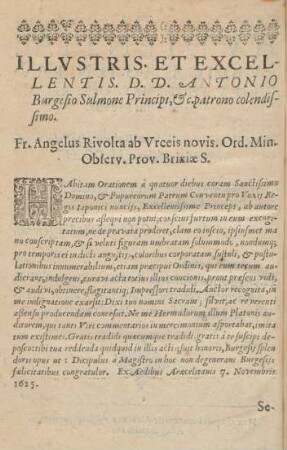 ILLVSTRIS. ET EXCEL-
LENTIS. D. D. ANTONIO
Burgesio Sulmone Principi, &c. patrono colendis-
simo.
Fr. Angelus Rivolta ab Vrceis novis. Ord. Min.
Observ. Prov. Brixiæ S.
HAbitam Orationem à quatuor diebus coram Sanctissimo
Domino, & Purpureorum Patrum Conventu pro Voxij Re-
gis Iaponici nuncijs, Excellentissime Princeps, ab autore
precibus assequi non potui; conscius furtum tuum excogi-
tatum, ne depravata prodiret, clam eo inscio, ipsiusmet ma
nu conscriptam, & si veluti figuram umbratam solummodò, nondumq;
pro temporis ei indicti angustijs, coloribus corporatam sustuli, & postu-
lationibus innumerabilium, etiam præcipui Ordinis, qui eum tecum au-
dierant, indolenti, gravi, docta, eloquenti actione, prout potes vidi,
& audivi, obsisterē, flagitantiq; Impressori tradidi. Auctor recognita, in
me indignatione exarsit: Dixi tuo nomini Sacram; siluit, ac reverenti
assensu producendam concessit. Ne me Hermodorum illum Platonis au-
ditorem, qui tanti Viri commentarios in mercimonium asportabat, imita
tum existimes. Gratis tradidi quæcumque tradidi, gratis à te suscipi de-
posco: tibi tua reddenda quidquid in illis actis; fuit honoris, Burgesij splen
dori opus ut: Discipulus à Magistro in hoc non degenerans Burgesijs
fælicitatibus congratulor. Ex Aedibus Aræcelitanis 17. Novembris
1615.
Se-